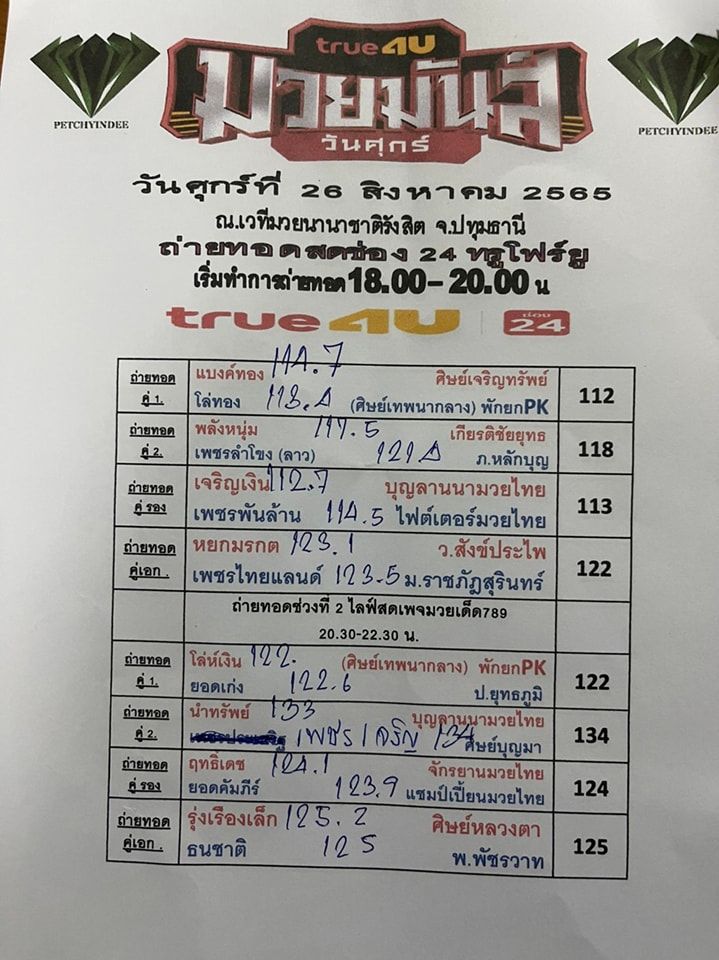 true4U
มวยมันส์
วันศุกร์
PETCHYINDEE
PETCHYINDEE
วันศุกร์ที่ 26 สิงหาคม 2565
ณ.เวทีมวยนานาชาติรังสิต จ.ปทุมธานี
ถ่ายทอดสดช่อง 24 ทรูโฟร์ยู
เริ่มทำการถ่ายทอด 18.00 – 20.00 น
true4U ช่อง 24
ถ่ายทอด คู่ 1. แบงค์ทอง 114.7 ศิษย์เจริญทรัพย์ 112
โล่ทอง 113.4 (ศิษย์เทพนากลาง) พักยกPK
ถ่ายทอด คู่ 2. พลังหนุ่ม 117.5 เกียรติชัยยุทธ 118
เพชรลำโขง (ลาว) 121.4 ภ.หลักบุญ
ถ่ายทอด คู่ รอง เจริญเงิน 112.7 บุญลานนามวยไทย 113
เพชรพันล้าน 114.5 ไฟต์เตอร์มวยไทย
ถ่ายทอด คู่เอก . หยกมรกต 123.1 ว.สังข์ประไพ 122
เพชรไทยแลนด์ 123.5 ม.ราชภัฎสุรินทร์
ถ่ายทอดช่วงที่ 2 ไลฟ์สดเพจมวยเด็ด789
20.30-22.30 น.
ถ่ายทอด คู่ 1. โล่ห์เงิน 122. (ศิษย์เทพนากลาง) พักยกPK 122
ยอดเก่ง 122.6 ป.ยุทธภูมิ
ถ่ายทอด คู่ 2. นำทรัพย์ 133 บุญลานนามวยไทย 134
เพชรเจริญ 134 ศิษย์บุญมา
ถ่ายทอด คู่ รอง ฤทธิ์เดช 124.1 จักรยานมวยไทย 124
ยอดคัมภีร์ 123.9 แชมป์เปี้ยนมวยไทย
ถ่ายทอด คู่เอก . รุ่งเรืองเล็ก 125.2 ศิษย์หลวงตา 125
ธนชาติ 125 พ.พัชรวาท